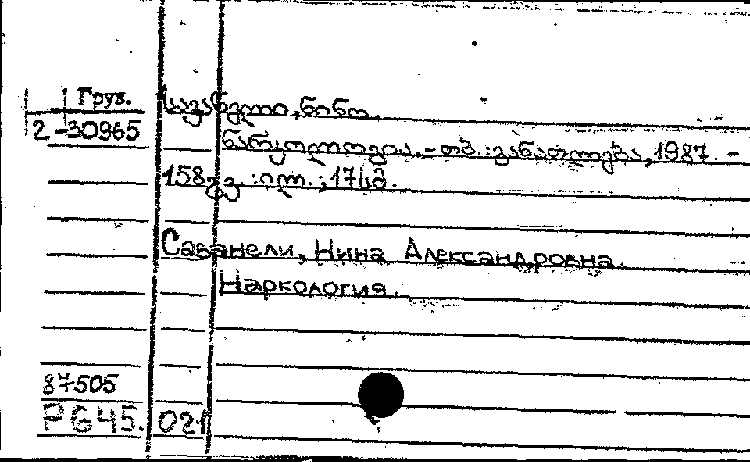 Груз.
2-30965
სავანელი, ნინო.
ნარკოლოგია. - თბ.: განათლება, 1987. -
158გვ.: ილ.; 17სმ.
Саванели, Нина Александровна.
Наркология.
87505
Р645.021